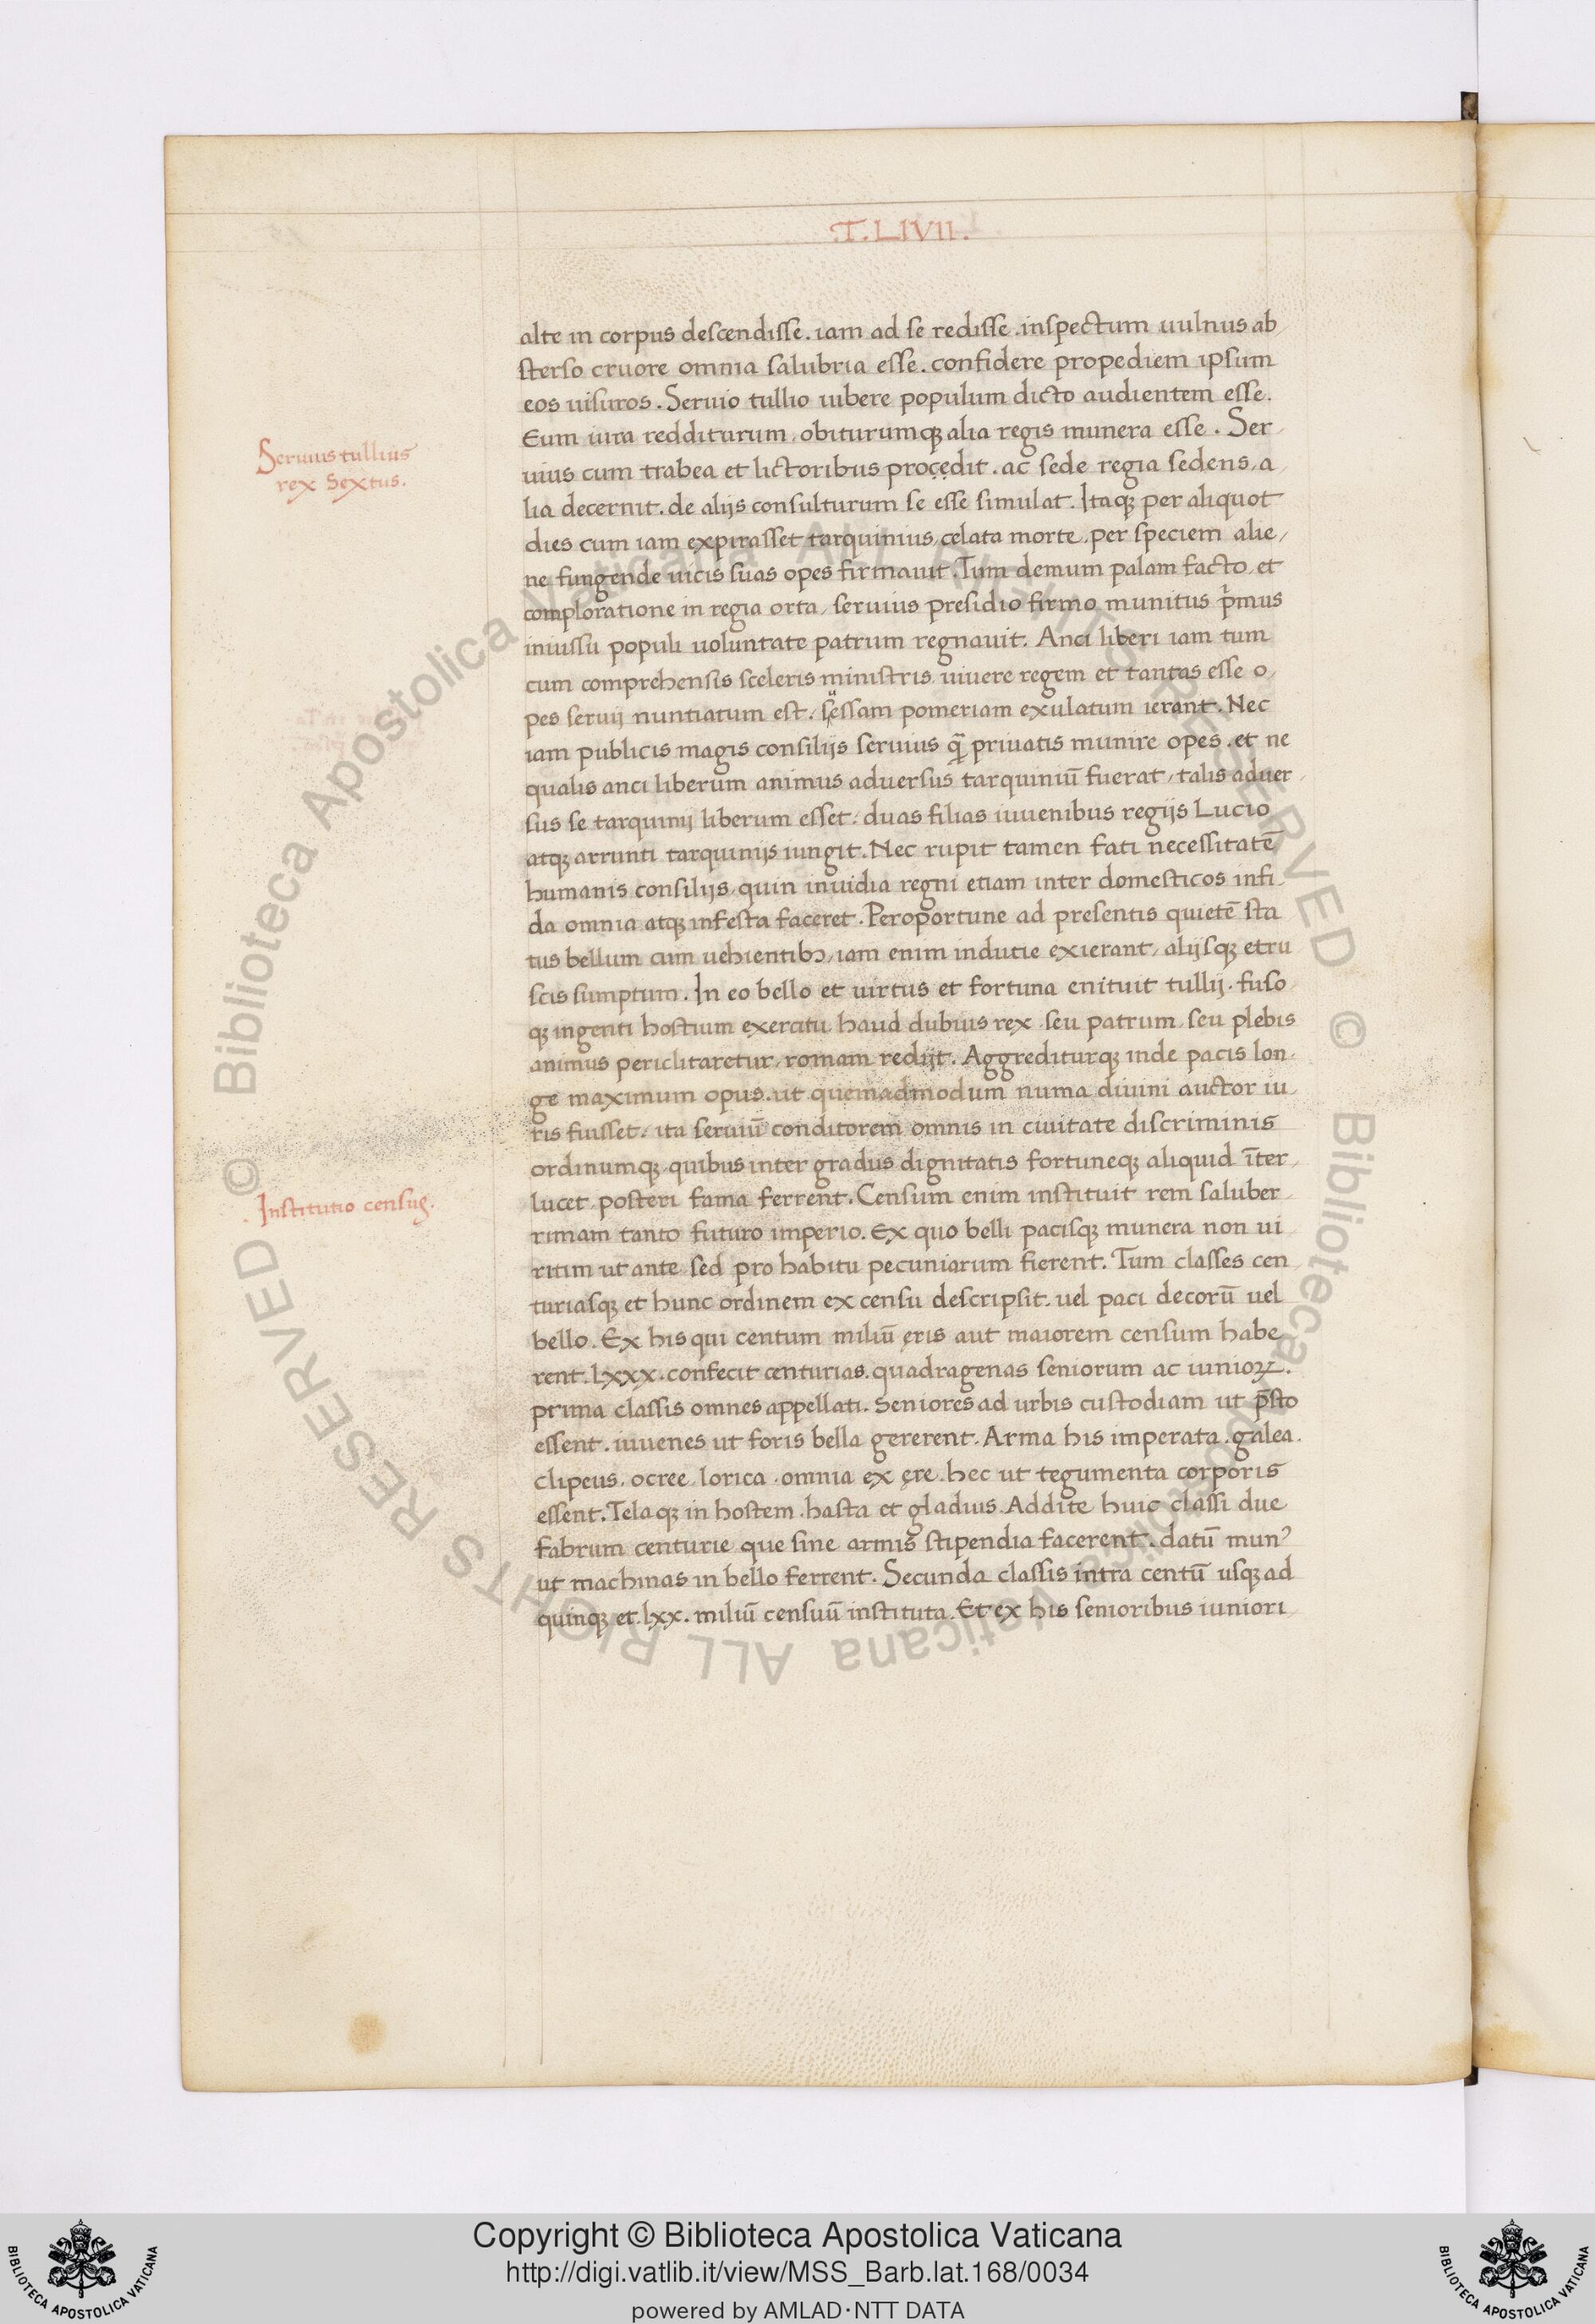 .T. LIVII.
alte in corpus descendisse. iam ad se redisse. inspectum uulnus ab
sterso cruore omnia salubria esse. confidere propediem ipsum
eos uisuros. Seruio tullio iubere populum dicto audientem esse.
Eum iura redditurum, obiturumq; alia regis munera esse. Ser
Seruius tullius
rex Sextus.
uius cum trabea et lictoribus proçędit. ac sede regia sedens, a
lia decernit. de alijs consulturum se esse simulat. Itaq; per aliquot
dies cum iam expirasset tarquinius, celata morte, per speciem alie
ne fungende uicis suas opes firmauit. Tum demum palam facto, et
comploratione in regia orta, seruius presidio firmo munitus p̄mus
iniussu populi uoluntate patrum regnauit. Anci liberi iam tum
cum comprehensis sceleris ministris uiuere regem et tantas esse o
pes seruij nuntiatum est, suessam pomeriam exulatum ierant. Nec
iam publicis magis consilijs seruius q̄ priuatis munire opes. et ne
qualis anci liberum animus aduersus tarquiniū fuerat, talis aduer
sus se tarquinij liberum esset, duas filias iuuenibus regijs Lucio
atq; arrunti tarquinijs iungit. Nec rupit tamen fati necessitatē
humanis consilijs, quin inuidia regni etiam inter domesticos infi
da omnia atq; infesta faceret. Peroportune ad presentis quietē sta
tus bellum cum uehientibꝫ, iam enim indutie exierant, alijsq; etru
scis sumptum. In eo bello et uirtus et fortuna enituit tullij. fuso
q; ingenti hostium exercitu haud dubius rex seu patrum seu plebis
animus periclitaretur, romam redijt. Aggrediturq; inde pacis lon
ge maximum opus. ut quemadmodum numa diuini auctor iu
ris fuisset, ita seruiū conditorem omnis in ciuitate discriminis
ordinumq; quibus inter gradus dignitatis fortuneq; aliquid īter
Institutio census.
lucet posteri fama ferrent. Censum enim instituit rem saluber
rimam tanto futuro imperio. Ex quo belli pacisq; munera non ui
ritim ut ante sed pro habitu pecuniarum fierent. Tum classes cen
turiasq; et hunc ordinem ex censu descripsit. uel paci decorū uel
bello. Ex his qui centum miliū ęris aut maiorem censum habe
rent. lxxx. confecit centurias. quadragenas seniorum ac iunioꝝ.
prima classis omnes appellati. Seniores ad urbis custodiam ut p̄sto
essent. iuuenes ut foris bella gererent. Arma his imperata. galea.
clipeus. ocree. lorica. omnia ex ęre. hec ut tegumenta corporis
essent. Telaq; in hostem. hasta et gladius. Addite huic classi due
fabrum centurie que sine armis stipendia facerent. datū munꝰ
ut machinas in bello ferrent. Secunda classis intra centū usq; ad
quinq; et lxx. miliū censuū instituta. Et ex his senioribus iuniori
© Biblioteca Apostolica Vaticana ALL RIGHTS RESERVED © Biblioteca Apostolica Vaticana ALL RIGHTS RESERVED
Copyright © Biblioteca Apostolica Vaticana
http://digi.vatlib.it/view/MSS_Barb.lat.168/0034
powered by AMLAD·NTT DATA
BIBLIOTECA APOSTOLICA VATICANA
BIBLIOTECA APOSTOLICA VATICANA